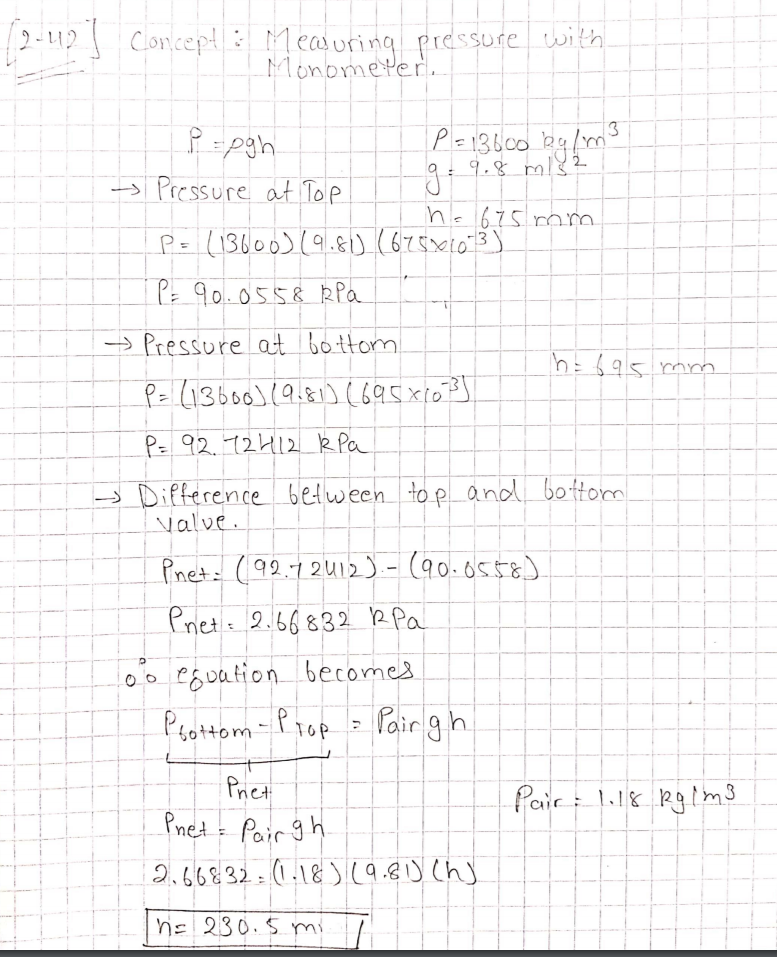 [2-42] Concept : Measuring pressure with
Monometer.
P = ρgh
ρ = 13600 kg/m³
g = 9.8 m/s²
→ Pressure at Top
h = 675 mm
P = (13600) (9.81) (675×10⁻³)
P = 90.0558 kPa
→ Pressure at bottom
h = 695 mm
P = (13600) (9.81) (695×10⁻³)
P = 92.72412 kPa
→ Difference between top and bottom
value.
Pnet = (92.72412) - (90.0558)
Pnet = 2.66832 kPa
∴ equation becomes
Pbottom - PTop = ρair gh
Pnet
ρair = 1.18 kg/m3
Pnet = ρair gh
2.66832 = (1.18) (9.81) (h)
h = 230.5 m